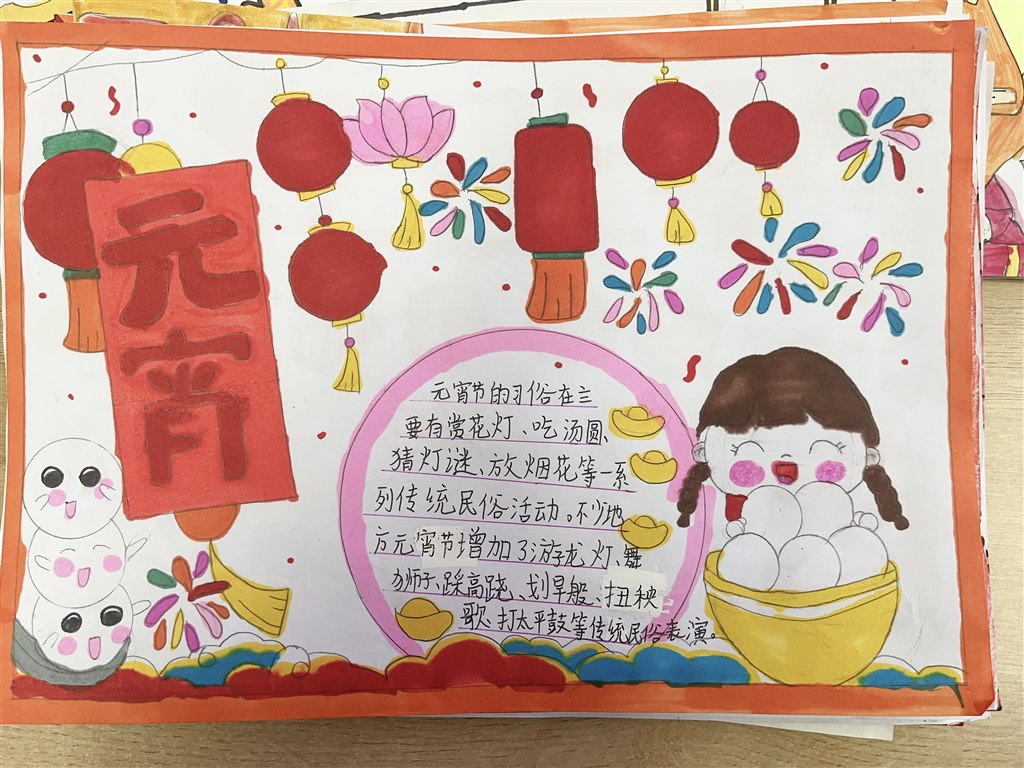 元宵
元宵节的习俗在三
要有赏花灯、吃汤圆、
猜灯谜、放烟花等一系
列传统民俗活动。不少地
方元宵节增加了游龙灯、舞
狮子、踩高跷、划旱般、扭秧
歌、打太平鼓等传统民俗表演。